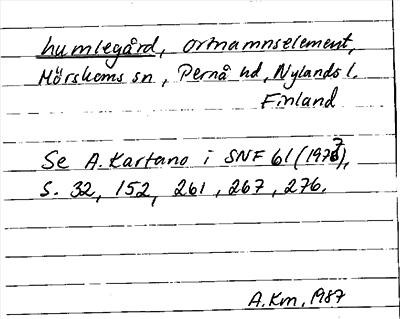 humlegård, ortnamnselement,
Mörskoms sn, Pernå hd, Nylands l.
Finland
Se A. Kartano i SNF 61 (1973),
s. 32, 152, 261, 267, 276.
A.Km, 1987